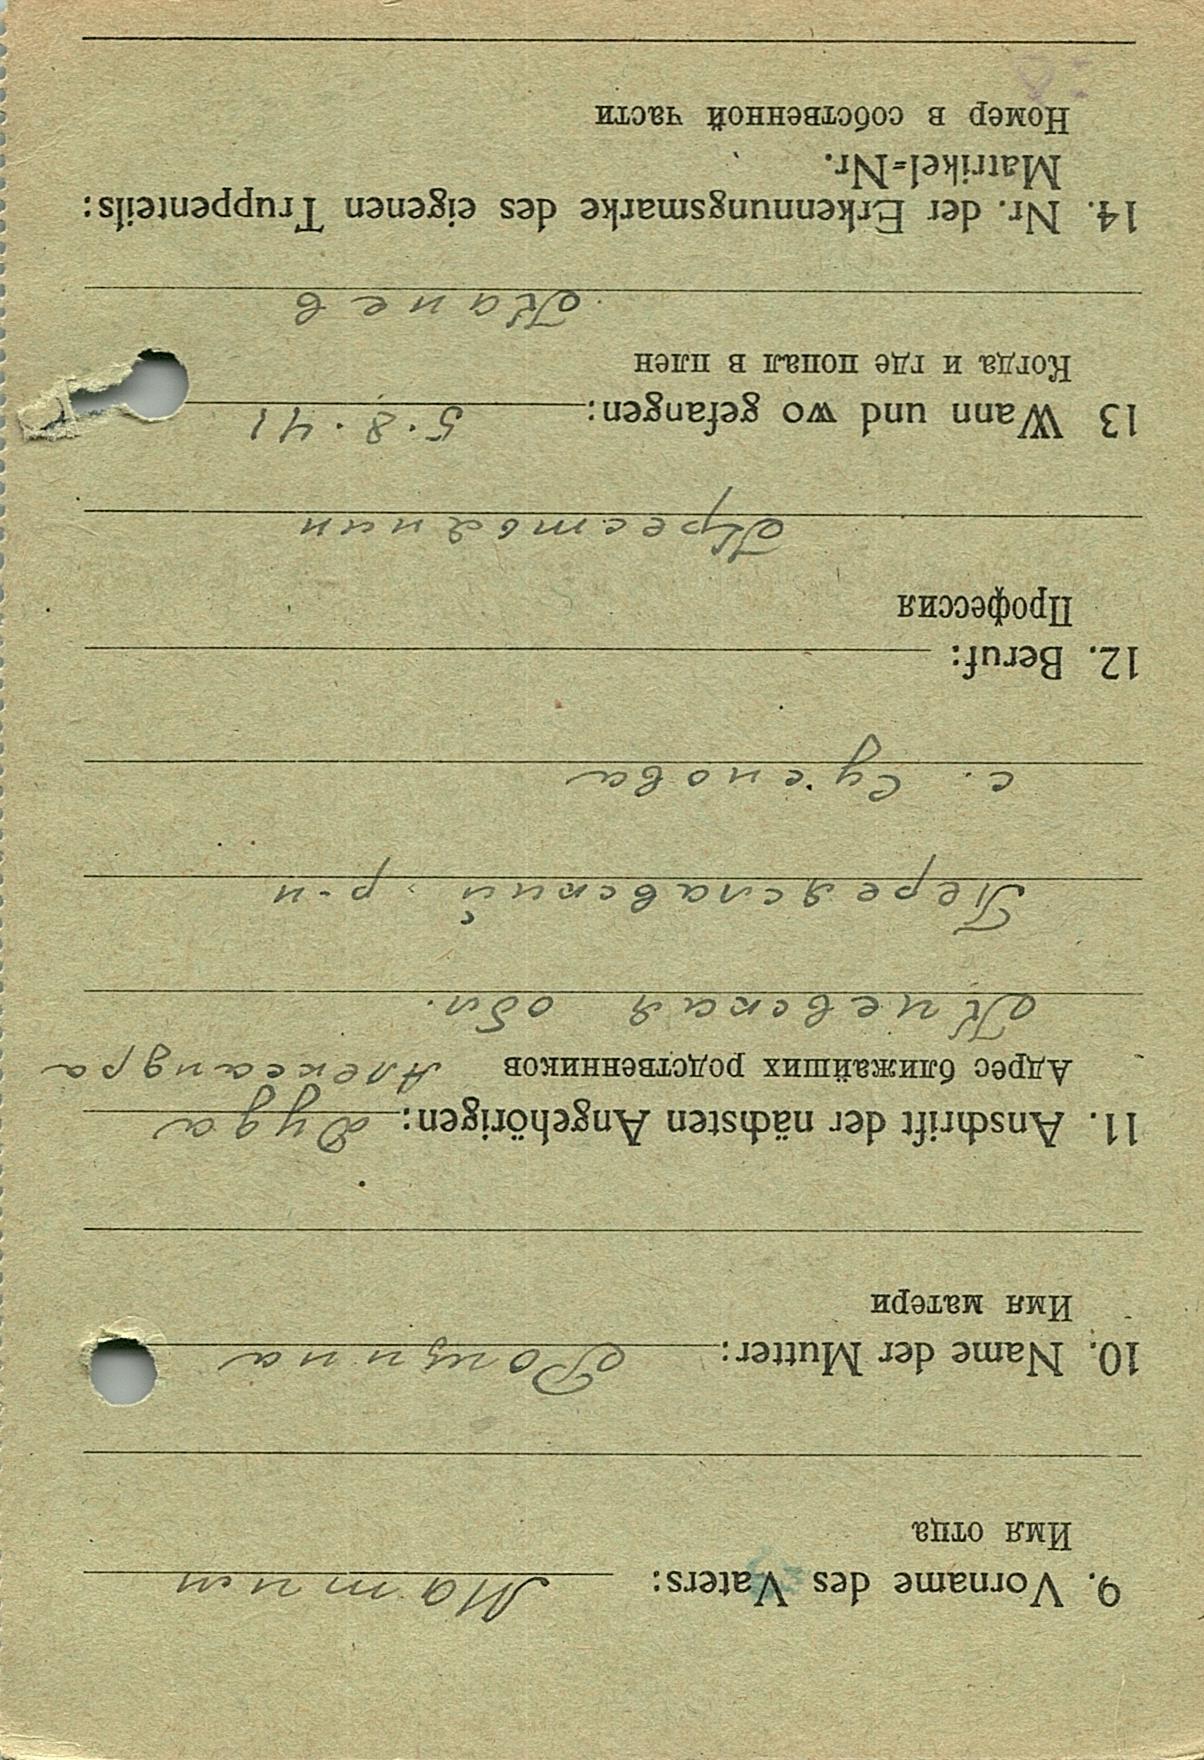 9. Vorname des Vaters: Матит
Имя отца
10. Name der Mutter:
Имя матери
11. Anschrift der nächsten Angehörigen: Дуда
Адрес ближайших родственников Александра
Киевская обл.
Переяславский р-н
с.
12. Beruf:
Профессия
Крестьянин
13 Wann und wo gefangen: 5.8.41
Когда и где попал в плен
Канев
14. Nr. der Erkennungsmarke des eigenen Truppenteils:
Matrikel-Nr.
Номер в собственной части